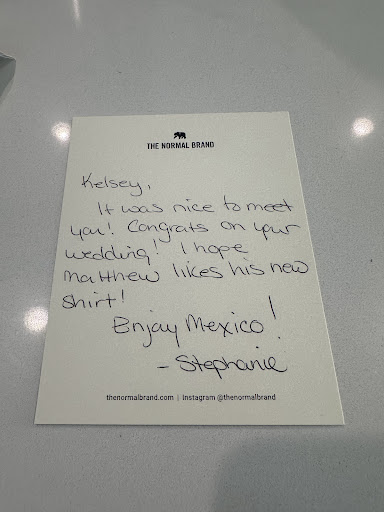 THE NORMAL BRAND
Kelsey,
It was nice to meet
you! Congrats on your
wedding! I hope
Matthew likes his new
shirt!
Enjoy Mexico!
- Stephanie
thenormalbrand.com | Instagram @thenormalbrand